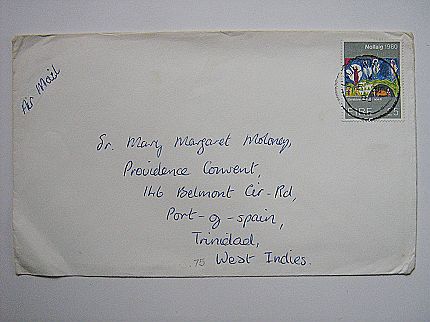 Nollaig 1980
ÉIRE
Air Mail
Sr. Mary Margaret Moloney,
Providence Convent,
146 Belmont Cir-Rd,
Port-of-spain,
Trinidad,
75 West Indies.